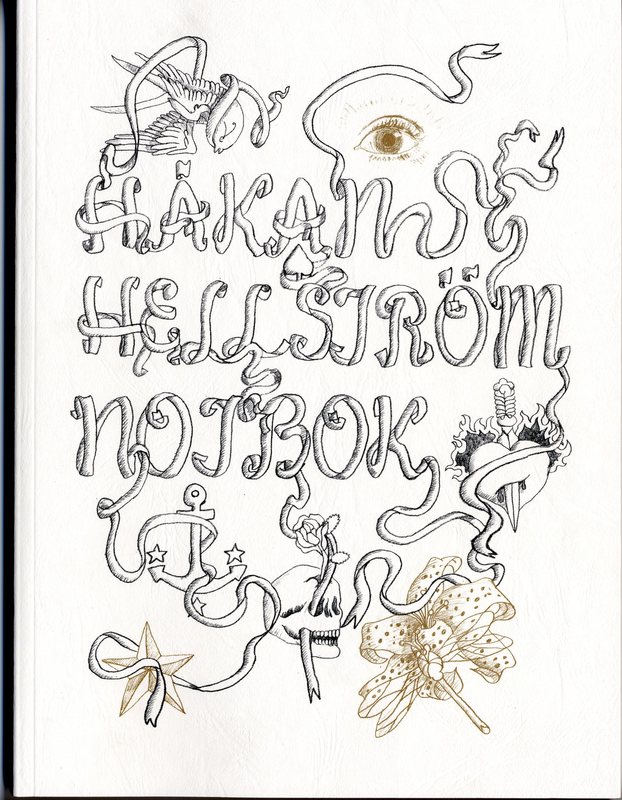 HÅKAN
HELLSTRÖM
NOTBOK